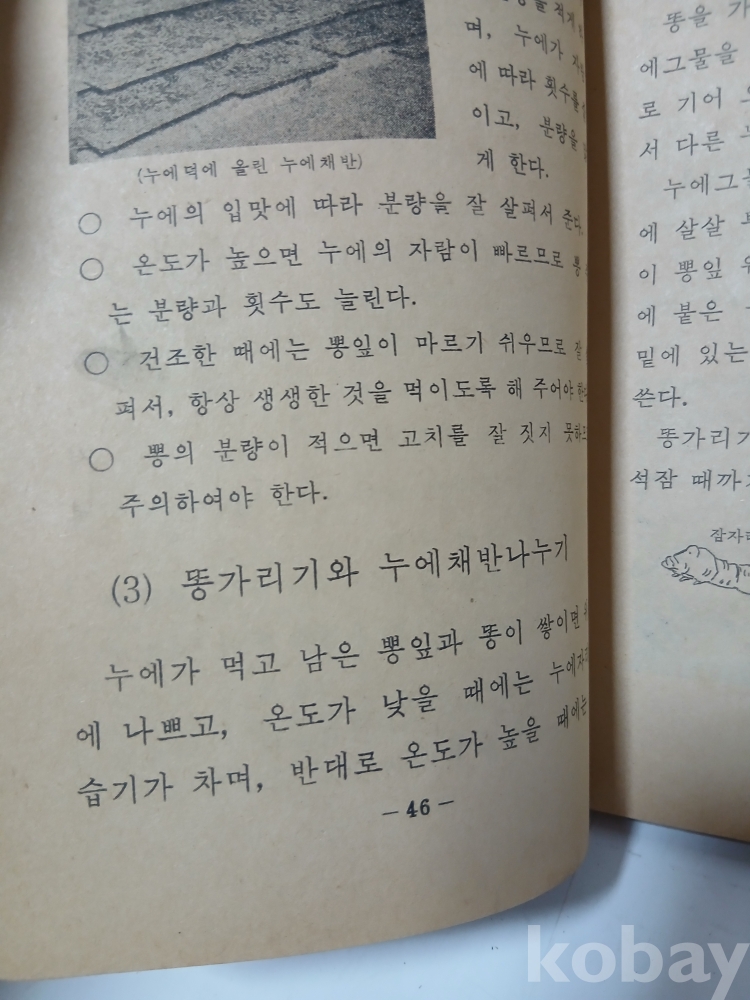 며, 누에가
에 따라 횟수를
이고, 분량을
게 한다.
(누에덕에 올린 누에채반)
○ 누에의 입맛에 따라 분량을 잘 살펴서 준다.
○ 온도가 높으면 누에의 자람이 빠르므로 뽕
는 분량과 횟수도 늘린다.
○ 건조한 때에는 뽕잎이 마르기 쉬우므로 잘
펴서, 항상 생생한 것을 먹이도록 해 주어야 한다
○ 뽕의 분량이 적으면 고치를 잘 짓지 못하므
주의하여야 한다.
(3) 똥가리기와 누에채반나누기
누에가 먹고 남은 뽕잎과 똥이 쌓이면
에 나쁘고, 온도가 낮을 때에는 누에자리
습기가 차며, 반대로 온도가 높을 때에는
— 46 —
똥을
에그물을
로 기어
서 다른
누에그
에 살살
이 뽕잎
에 붙은
밑에 있는
쓴다.
똥가리기
석잠 때까
잠자리
kobay